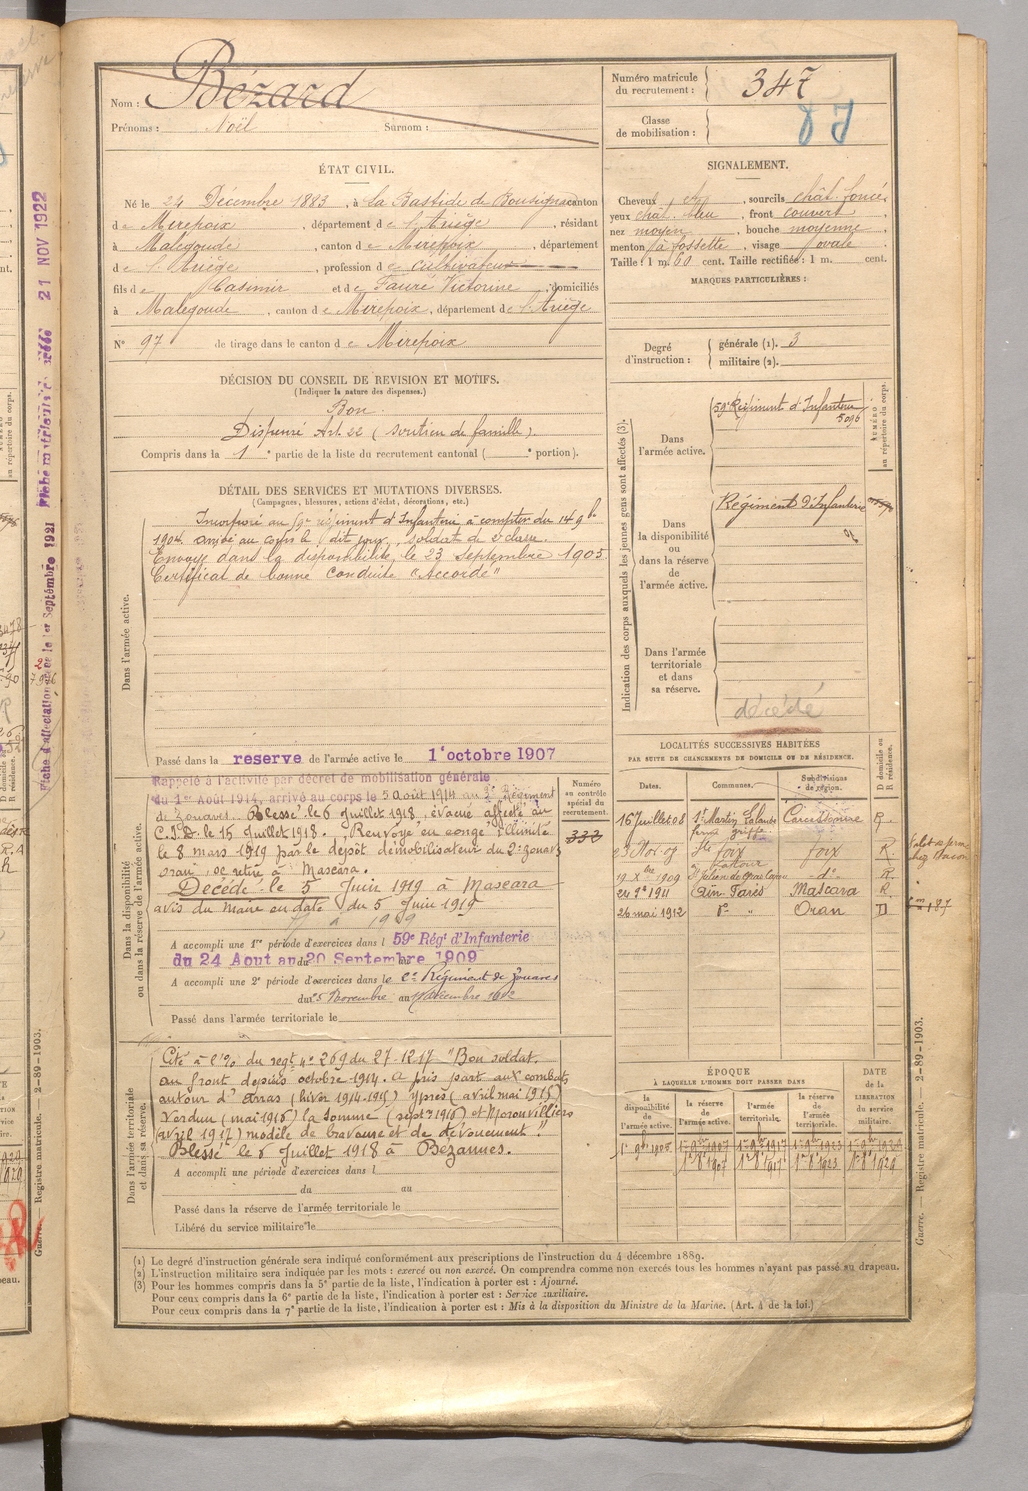 Nom : Bézard
Prénoms : Noël Surnom :
Numéro matricule du recrutement : 347
Classe de mobilisation :
ÉTAT CIVIL.
Né le 24 Décembre 1883, à la Bastide de Bousignac canton
de Mirepoix, département de l'Ariège, résidant
à Malegoude, canton de Mirepoix, département
de l'Ariège, profession de cultivateur
fils de Casimir et de Fauré Victorine, domiciliés
à Malegoude, canton de Mirepoix, département de l'Ariège
N° 97 de tirage dans le canton de Mirepoix
SIGNALEMENT.
Cheveux ch, sourcils chât. foncé,
yeux chât. bleu, front couvert,
nez moyen, bouche moyenne,
menton à fossette, visage ovale
Taille : 1 m. 60 cent. Taille rectifiée : 1 m. cent.
MARQUES PARTICULIÈRES :
Degré d'instruction : générale (1). 3
militaire (2).
DÉCISION DU CONSEIL DE REVISION ET MOTIFS.
(Indiquer la nature des dispenses.)
Bon
Dispensé Art. 22 (soutien de famille).
Compris dans la 1e partie de la liste du recrutement cantonal ( e portion).
DÉTAIL DES SERVICES ET MUTATIONS DIVERSES.
(Campagnes, blessures, actions d'éclat, décorations, etc.)
Dans l'armée active.
Incorporé au 59e régiment d'Infanterie à compter du 14 9b
1904 arrivé au corps le dit jour, soldat de 2e classe.
Envoyé dans la disponibilité, le 23 septembre 1905.
Certificat de bonne conduite "Accordé"
Passé dans la reserve de l'armée active le 1er octobre 1907
Indication des corps auxquels les jeunes gens sont affectés (3).
NUMÉRO au répertoire du corps.
Dans l'armée active.
59e Régiment d'Infanterie
5096
Dans la disponibilité ou dans la réserve de l'armée active.
Régiment d'Infanterie
Dans l'armée territoriale et dans sa réserve.
décédé
Dans la disponibilité ou dans la réserve de l'armée active.
Rappelé à l'activité par décret de mobilisation générale
du 1er Août 1914, arrivé au corps le 5 août 1914 au 2e Régiment
de Zouaves. Blessé le 6 Juillet 1918, évacué affecté au
C.I.D. le 15 Juillet 1918. Renvoyé en congé illimité
le 8 mars 1919 par le dépôt démobilisateur du 2e zouaves
Oran, se retire à Mascara.
Décédé le 5 Juin 1919 à Mascara
avis du Maire en date du 5 Juin 1919
A accompli une 1re période d'exercices dans l 59e Régt d'Infanterie
du 24 Aout au 20 Septembre 1909
A accompli une 2e période d'exercices dans le 2e Régiment de Zouaves
du 25 Novembre au 11 décembre 1912
Passé dans l'armée territoriale le
Numéro au contrôle spécial du recrutement.
332
LOCALITÉS SUCCESSIVES HABITÉES
PAR SUITE DE CHANGEMENTS DE DOMICILE OU DE RÉSIDENCE.
Dates. Communes. Subdivisions de région. D domicile ou R résidence.
16 Juillet 08 St Martin Lalande Carcassonne R.
23 Nov. 09 Foix Foix R
19 Xbre 1909 -do- R
1911 Aïn-Farès Mascara R
26 mai 1912 do " Oran D
Dans l'armée territoriale et dans sa réserve.
Cité à l'% du regt n° 269 du 27-12-17 "Bon soldat,
au front depuis octobre 1914. A pris part aux combats
autour d'Arras (hiver 1914-1915) Ypres (avril mai 1915)
Verdun (mai 1916) la Somme (septre 1916) et Moronvilliers
(avril 1917) modèle de bravoure et de dévouement."
Blessé le 6 Juillet 1918 à Bezannes.
A accompli une période d'exercices dans l
du au
Passé dans la réserve de l'armée territoriale le
Libéré du service militaire le
ÉPOQUE
À LAQUELLE L'HOMME DOIT PASSER DANS
DATE de la LIBÉRATION du service militaire.
la disponibilité de l'armée active. la réserve de l'armée active. l'armée territoriale. la réserve de l'armée territoriale.
(1) Le degré d'instruction générale sera indiqué conformément aux prescriptions de l'instruction du 4 décembre 1889.
(2) L'instruction militaire sera indiquée par les mots : exercé ou non exercé. On comprendra comme non exercés tous les hommes n'ayant pas passé au drapeau.
(3) Pour les hommes compris dans la 5e partie de la liste, l'indication à porter est : Ajourné.
Pour ceux compris dans la 6e partie de la liste, l'indication à porter est : Service auxiliaire.
Pour ceux compris dans la 7e partie de la liste, l'indication à porter est : Mis à la disposition du Ministre de la Marine. (Art. 4 de la loi.)
Guerre. — Registre matricule. — 2-89-1903.
21 NOV 1922
1er Septembre 1921